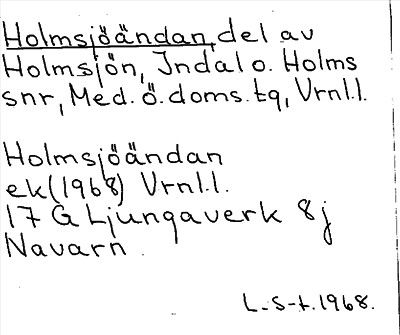 Holmsjöändan, del av
Holmsjön, Indal o. Holms
snr, Med. Ö. doms. tg, Vrnl.l.
Holmsjöändan
ek (1968) Vrnl.l.
17 G Ljungaverk 8j
Navarn.
L. S-t. 1968.